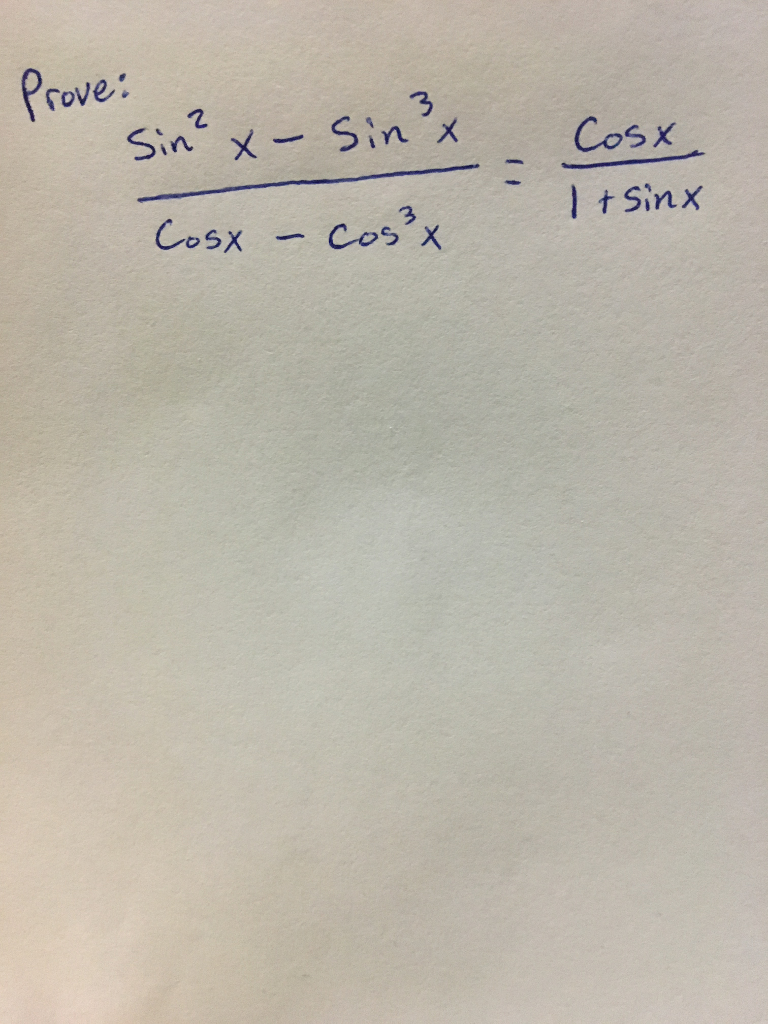 Prove:
Sin² x - Sin³x / Cosx - Cos³x = Cosx / 1 + Sinx